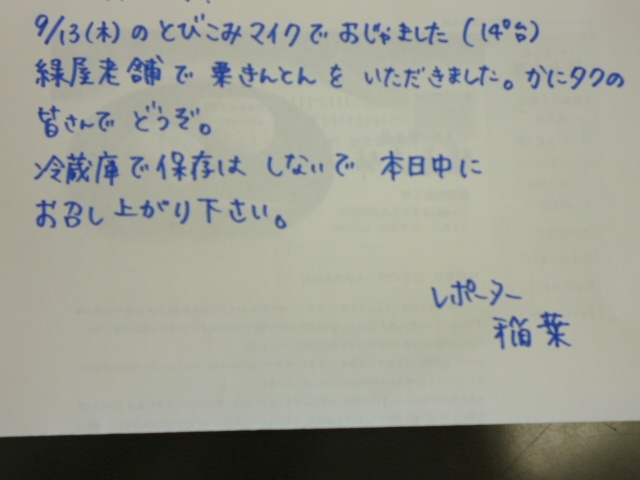 9/13(木)のとびこみマイクでおじゃました(14°台)
緑屋老舗で栗きんとんをいただきました。かにタクの
皆さんでどうぞ。
冷蔵庫で保存はしないで本日中に
お召し上がり下さい。
レポーター
稲葉